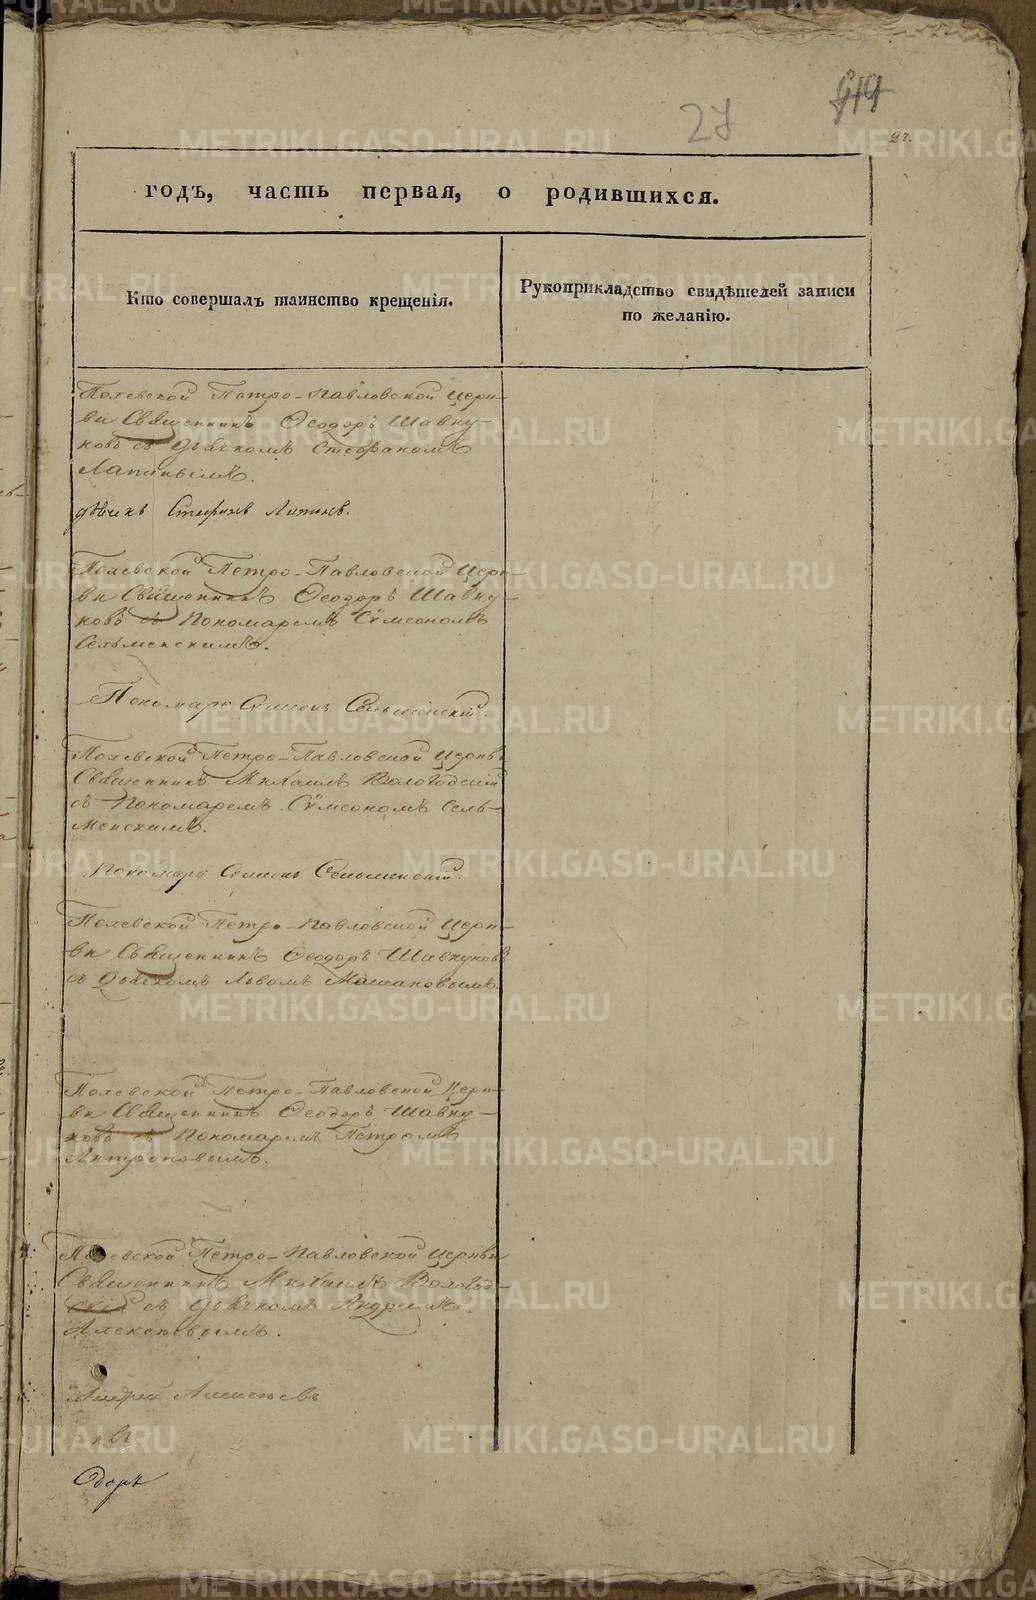 27
27.
годъ, часть первая, о родившихся.
Кто совершалъ таинство крещенія.
Рукоприкладство свидѣтелей записи
по желанію.
Полевской Петро-Павловской Церк-
ви Священникъ Ѳеодоръ Шавку-
новъ съ Дьячкомъ Стефаномъ
Лапинымъ.
дьячекъ Стефанъ Лапинъ.
Полевской Петро-Павловской Церк-
ви Священникъ Ѳеодоръ Шавку-
новъ съ Пономаремъ Сѵмеономъ
Сельменскимъ.
Пономарь Симеонъ Сельменский.
Полевской Петро-Павловской Церкви
Священникъ Михаилъ Вологодский
съ Пономаремъ Сѵмеономъ Сель-
менскимъ.
Пономарь Симеонъ Сельменский.
Полевской Петро-Павловской Церк-
ви Священникъ Ѳеодоръ Шавкуновъ
съ Дьячкомъ Львомъ
Полевской Петро-Павловской Церк-
ви Священникъ Ѳеодоръ Шавку-
новъ съ Пономаремъ Петромъ
Антроповымъ.
Полевской Петро-Павловской Церкви
Священникъ Михаилъ Вологод-
ский съ Дьячкомъ Андреемъ
Алексѣевымъ.
Андрей Алексѣевъ
METRIKI.GASO-URAL.RU